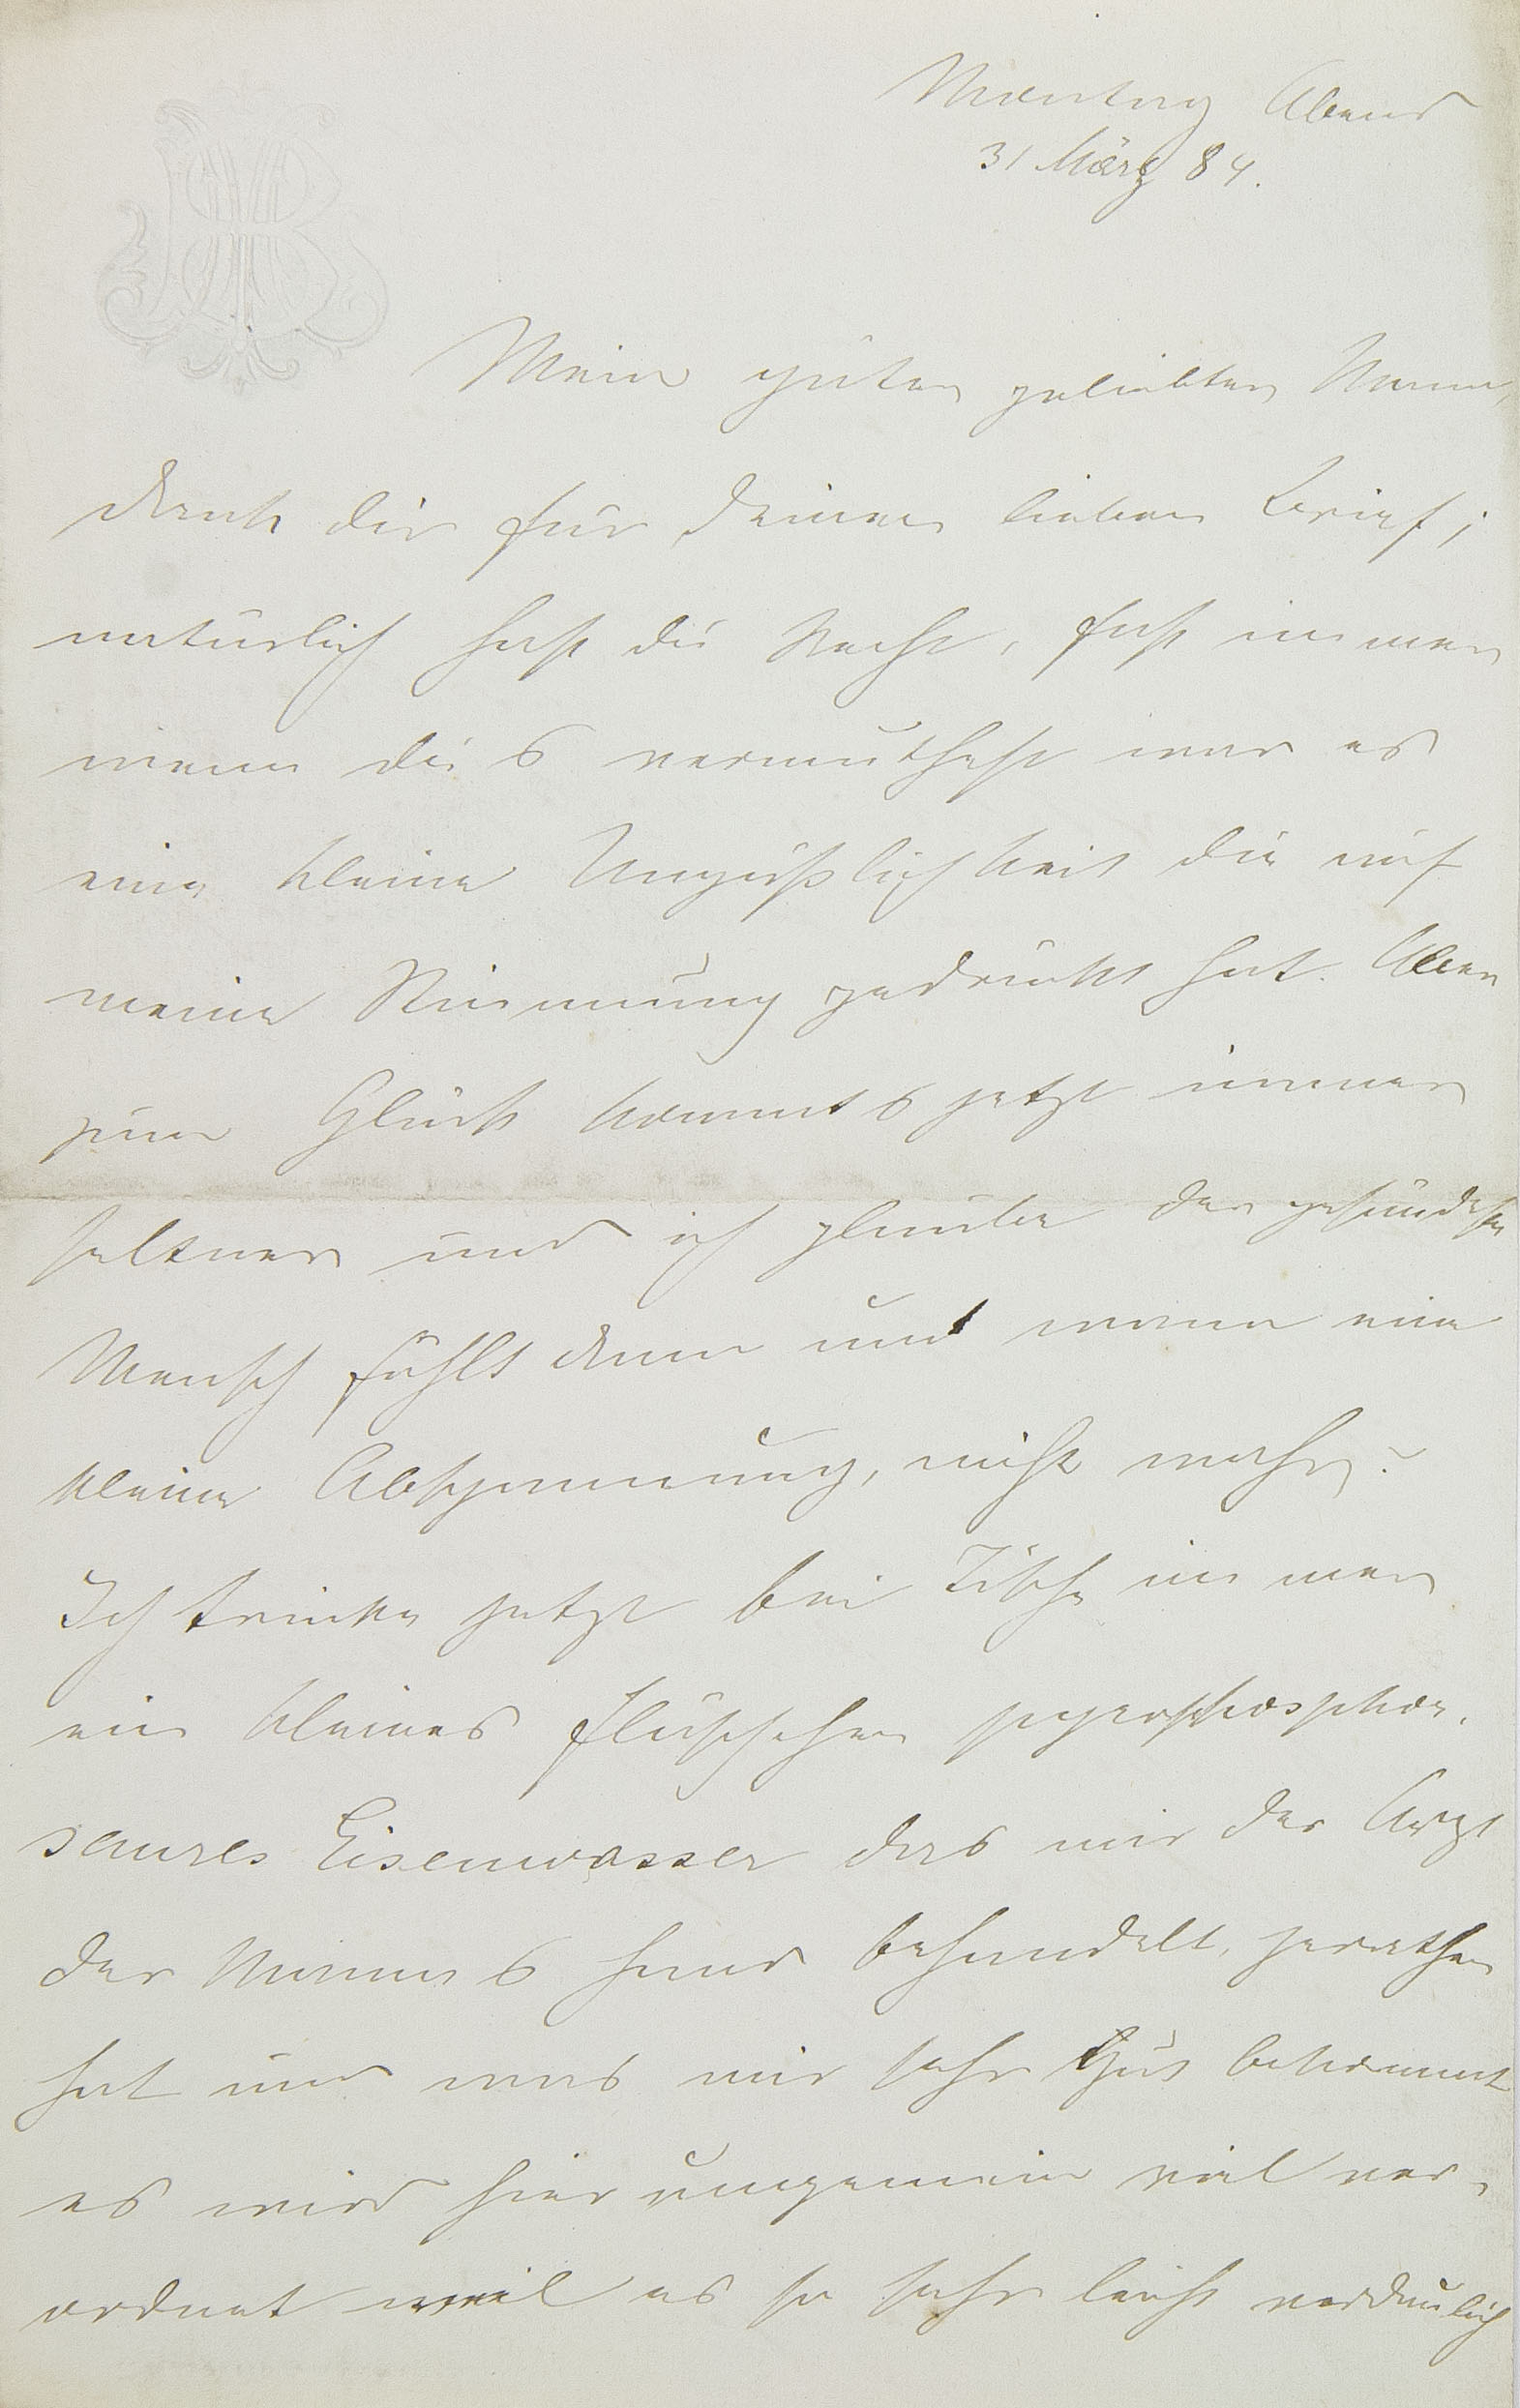 MB
Montag Abend
31 März 84.
Mein guter geliebter Mann,
dank dir für deinen lieben Brief;
natürlich hast du Recht, fast immer
wenn du's vermuthest war es
eine kleine Unpäßlichkeit die auf
meine Stimmung gedrückt hat. Aber
zum Glück kommt's jetzt immer
seltner und ich glaube der gesündeste
Mensch fühlt dann und wann eine
kleine Abspannung, nicht wahr?
Ich trinke jetzt bei Tische immer
ein kleines Fläschchen pyrophosphor-
saures Eisenwasser das mir der Arzt
der Mama's Hand behandelt, gerathen
hat und was mir sehr gut bekommt
es wird hier ungemein viel ver-
ordnet weil es so sehr leicht verdaulich